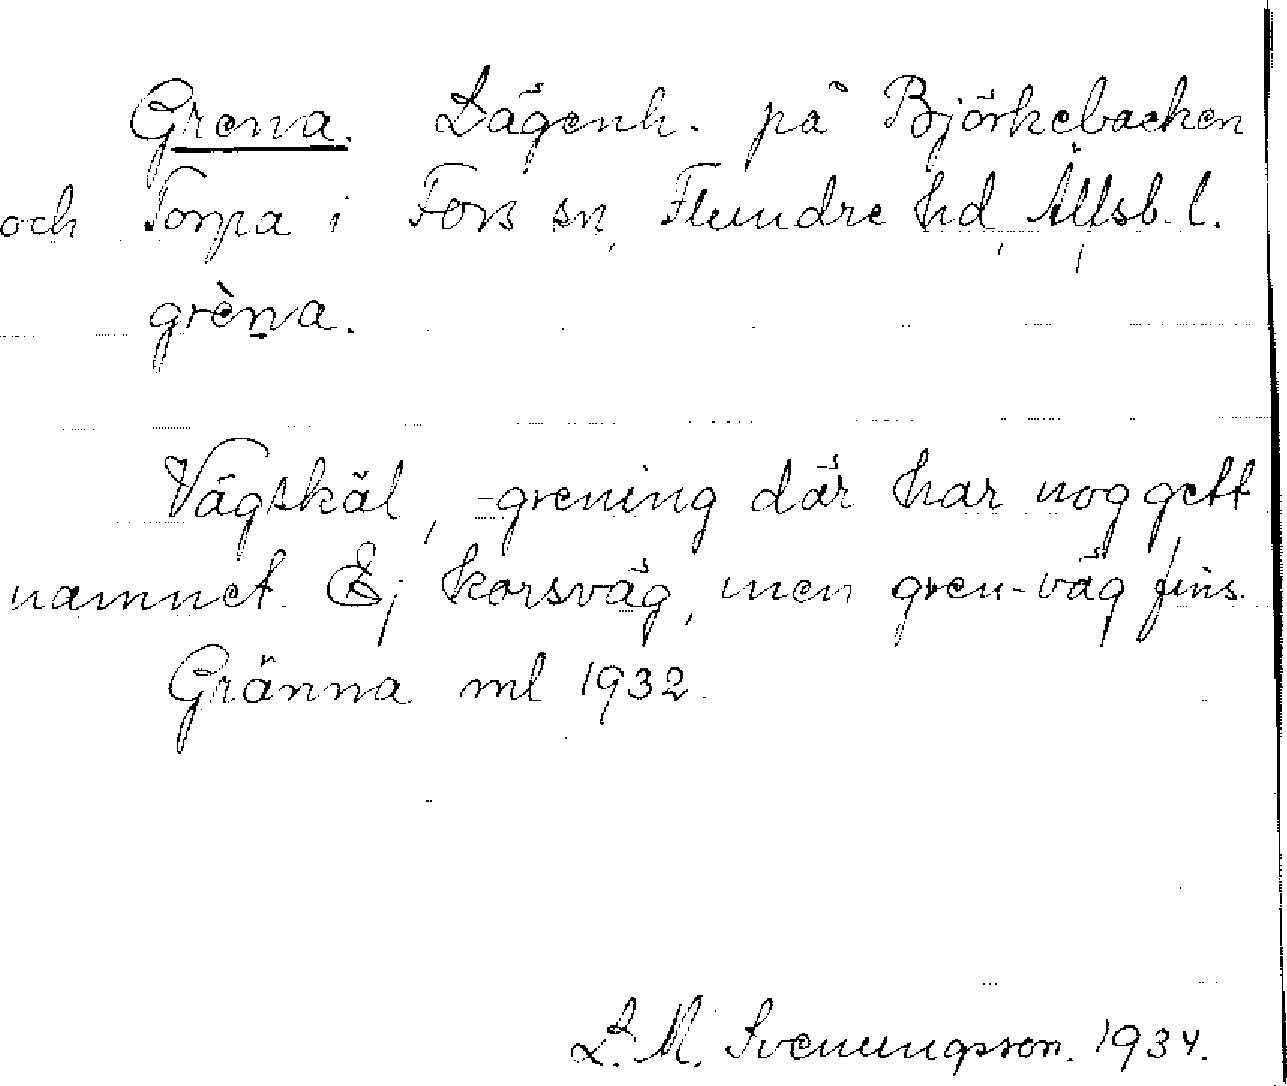 Grena. Lägenh. på Björkebacken
och Torpa i Fors sn, Flundre hd, Älfsb. l.
grèna.
Vägskäl, -grening där har nog gett
namnet. Ej korsväg, men gren-väg fins.
Gränna ml 1932.
L. M. Svenungsson. 1934.